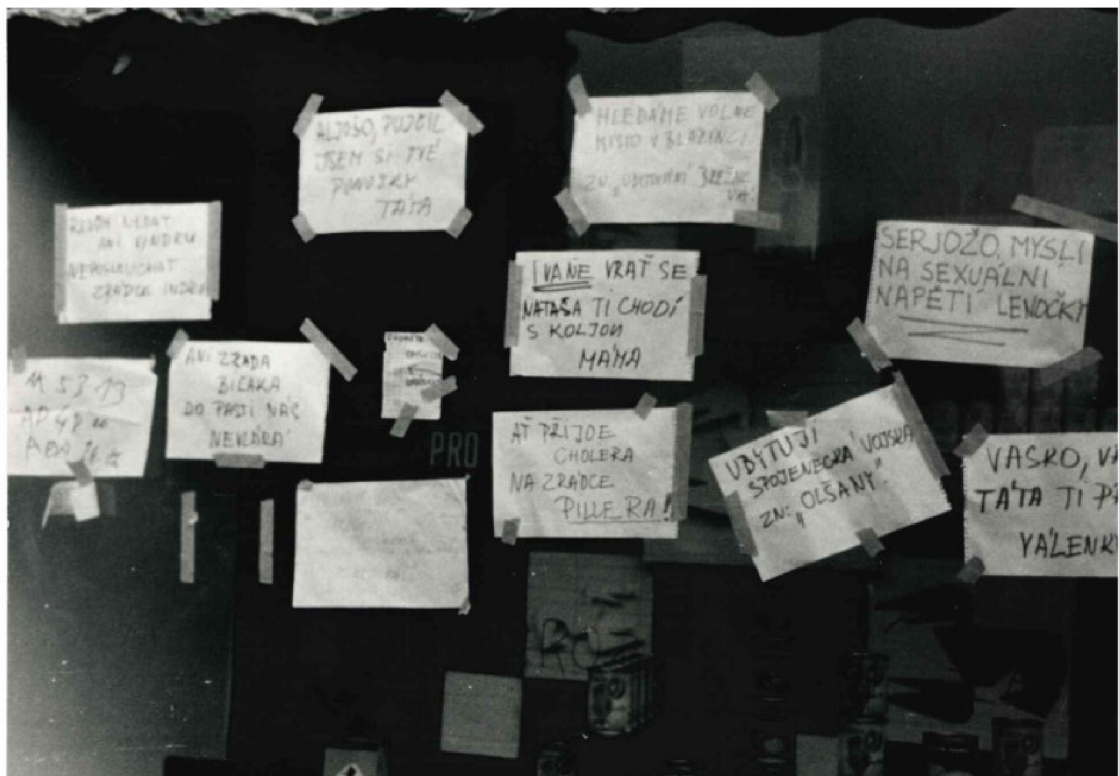 ALJOŠO, PŮJČIL
JSEM SI TVÉ
PONOŽKY
TÁTA
HLEDÁME VOLNÉ
MÍSTO V BLÁZINCI
ZN. „UBYTOVÁNÍ BREŽNĚ
VA"
RUDÝM NEDAT
ANI KINDRU
NEPOSLOUCHAT
ZRÁDCE INDRU
IVANE VRAŤ SE
NATAŠA TI CHODÍ
S KOLJOU
MÁMA
SERJOŽO, MYSLI
NA SEXUÁLNI
NAPĚTÍ LENOČKY
53-13
ANI ZRADA
BIĹAKA
DO PASTI NÁS
NEVLÁKÁ
PRO
AŤ PŘIJDE
CHOLERA
NA ZRÁDCE
PILLERA!
UBYTUJI
SPOJENECKÁ VOJSKA
ZN: „OLŠANY"
VASKO, VA
TÁTA TI P
VÁLENK